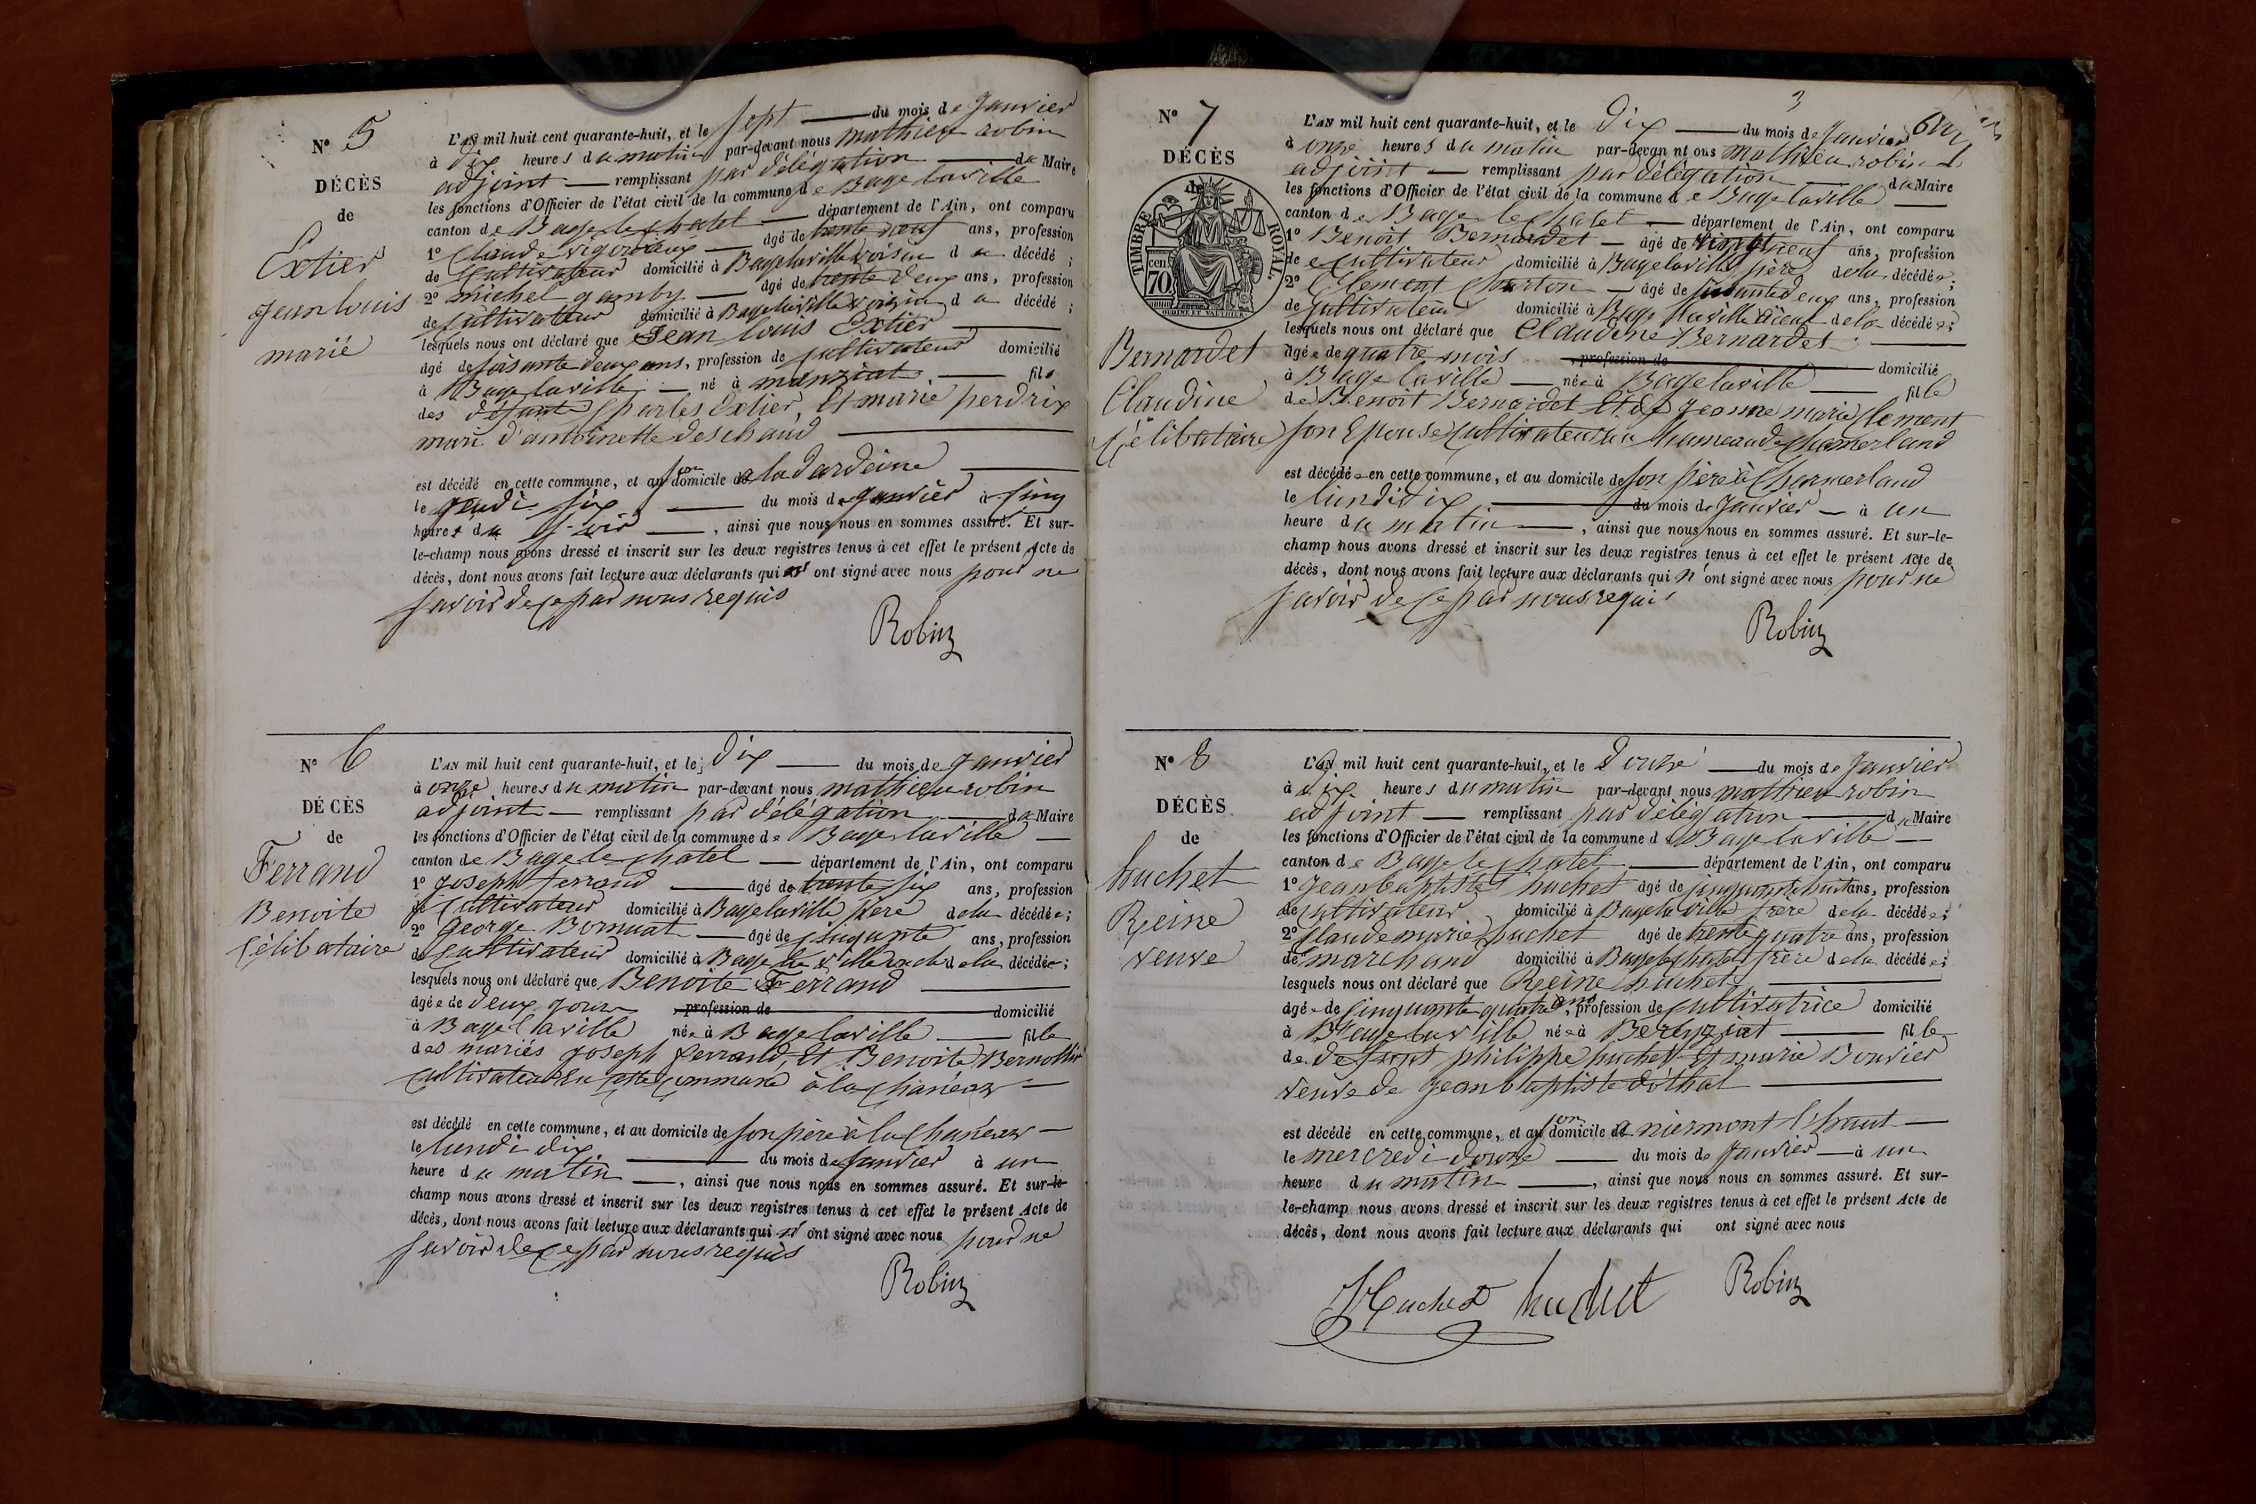 N° 5
DÉCÈS
de
Extier
jean louis
marié
L'AN mil huit cent quarante-huit, et le sept du mois de janvier
à dix heures du matin par-devant nous mathieu robin
adjoint remplissant par délégation du Maire
les fonctions d'Officier de l'état civil de la commune de Bage laville
canton de Bage le chatel département de l'Ain, ont comparu
1° Claude vigoureux âgé de trente neuf ans, profession
de Cultivateur domicilié à Bage laville voisin du décédé ;
2° michel gamby âgé de trente deux ans, profession
de Cultivateur domicilié à Bage laville voisin du décédé ;
lesquels nous ont déclaré que Jean louis Extier
âgé de soisante deux ans, profession de Cultivateur domicilié
à Bage laville né à manziat fils
des défunts Charles Extier, Et marie perdrix
mari d'antoinette deschaud
est décédé en cette commune, et au son domicile de a la dardeine
le jeudi six du mois de janvier à Cinq
heures du soir , ainsi que nous nous en sommes assuré. Et sur-
le-champ nous avons dressé et inscrit sur les deux registres tenus à cet effet le présent Acte de
décès, dont nous avons fait lecture aux déclarants qui n' ont signé avec nous pour ne
savoir de ce par nous requis
Robin
N° 6
DÉCÈS
de
Ferrand
Benoite
Célibataire
L'AN mil huit cent quarante-huit, et le dix du mois de janvier
à onze heures du matin par-devant nous mathieu robin
adjoint remplissant par délégation du Maire
les fonctions d'Officier de l'état civil de la commune de Bage laville
canton de Bage le chatel département de l'Ain, ont comparu
1° joseph ferrand âgé de trente six ans, profession
de Cultivateur domicilié à Bage laville père de la décédée ;
2° george Bornuat âgé de Cinquante ans, profession
de Cultivateur domicilié à Bage la ville de la décédée ;
lesquels nous ont déclaré que Benoite Ferrand
âgée de deux jours , profession de domicilié
à Bage laville née à Bage laville fille
des mariés joseph ferrand, Et Benoite Bernollin
Cultivateurs En cette Commune à la Chanéaz
est décédé en cette commune, et au domicile de son père à la Chanéaz
le lundi dix du mois de janvier à un
heure du matin , ainsi que nous nous en sommes assuré. Et sur-le-
champ nous avons dressé et inscrit sur les deux registres tenus à cet effet le présent Acte de
décès, dont nous avons fait lecture aux déclarants qui n' ont signé avec nous pour ne
savoir de ce par nous requis
Robin
3
N° 7
DÉCÈS
de
TIMBRE ROYAL
cen 70
Bernardet
Claudine
Célibataire
L'AN mil huit cent quarante-huit, et le dix du mois de janvier
à onze heures du matin par-devant nous mathieu robin
adjoint remplissant par délégation du Maire
les fonctions d'Officier de l'état civil de la commune de Bage laville
canton de Bage le chatel département de l'Ain, ont comparu
1° Benoit Bernardet âgé de vingt neuf ans, profession
de Cultivateur domicilié à Bage laville père de la décédée ;
2° Clement Charton âgé de soisante deux ans, profession
de Cultivateur domicilié à Bage laville aïeul de la décédée ;
lesquels nous ont déclaré que Claudine Bernardet
âgée de quatre mois , profession de domicilié
à Bage laville née à Bage laville fille
de Benoit Bernardet Et de jeanne marie Clement
son Epouse Cultivateurs au hameau de Chamerland
est décédée en cette commune, et au domicile de son père à Chamerland
le lundi dix du mois de janvier à un
heure du matin , ainsi que nous nous en sommes assuré. Et sur-le-
champ nous avons dressé et inscrit sur les deux registres tenus à cet effet le présent Acte de
décès, dont nous avons fait lecture aux déclarants qui n' ont signé avec nous pour ne
savoir de ce par nous requis
Robin
N° 8
DÉCÈS
de
huchet
Reine
veuve
L'AN mil huit cent quarante-huit, et le douze du mois de janvier
à dix heures du matin par-devant nous mathieu robin
adjoint remplissant par délégation du Maire
les fonctions d'Officier de l'état civil de la commune de Bage laville
canton de Bage le chatel département de l'Ain, ont comparu
1° jean baptiste huchet âgé de cinquante huit ans, profession
de Cultivateur domicilié à Bage laville frère de la décédée ;
2° Claude marie huchet âgé de trente quatre ans, profession
de marchand domicilié à Bage le chatel frère de la décédée ;
lesquels nous ont déclaré que Reine huchet
âgée de Cinquante quatre ans, profession de Cultivatrice domicilié
à Bage laville née à Bereyziat fille
de defunt philippe huchet Et marie Bouvier
veuve de jean baptiste dóthal
est décédé en cette commune, et au son domicile de a niermont l'haut
le mercredi douze du mois de janvier à un
heure du matin , ainsi que nous nous en sommes assuré. Et sur-
le-champ nous avons dressé et inscrit sur les deux registres tenus à cet effet le présent Acte de
décès, dont nous avons fait lecture aux déclarants qui ont signé avec nous
Huchet huchet Robin